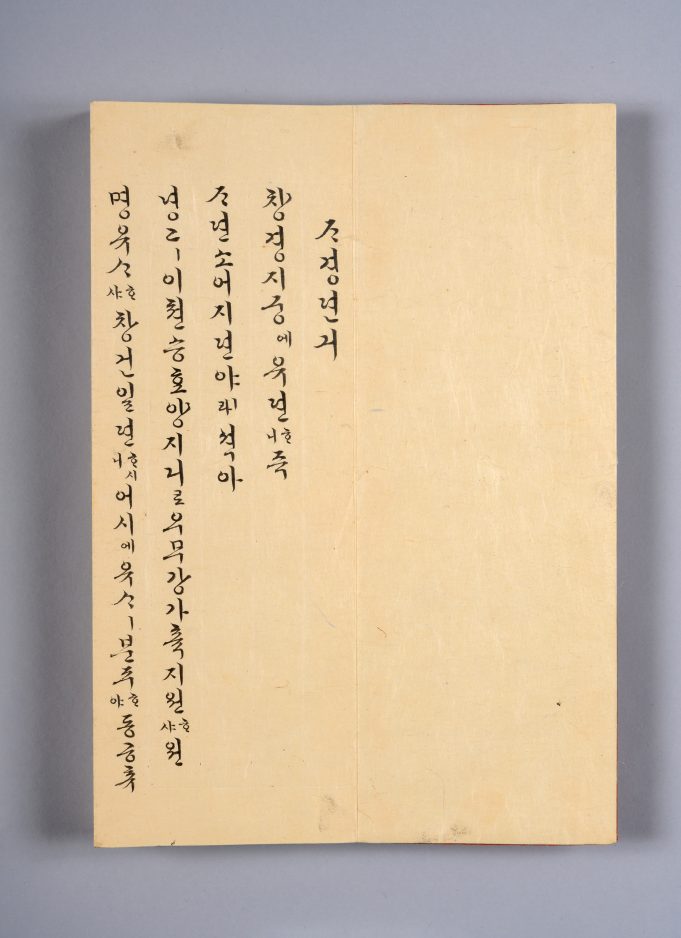 ᄌᆞ경뎐긔
창경지궁에유뎐ᄒᆞ니즉
ᄌᆞ뎐소어지뎐야ㅣ라셕아
녕고ㅣ이쳔승효양지귀로우무강가츅지원ᄒᆞ샤원
명유ᄉᆞᄒᆞ샤창건일뎐ᄒᆞ시니어시에유ᄉᆞㅣ분주ᄒᆞ야동공츅